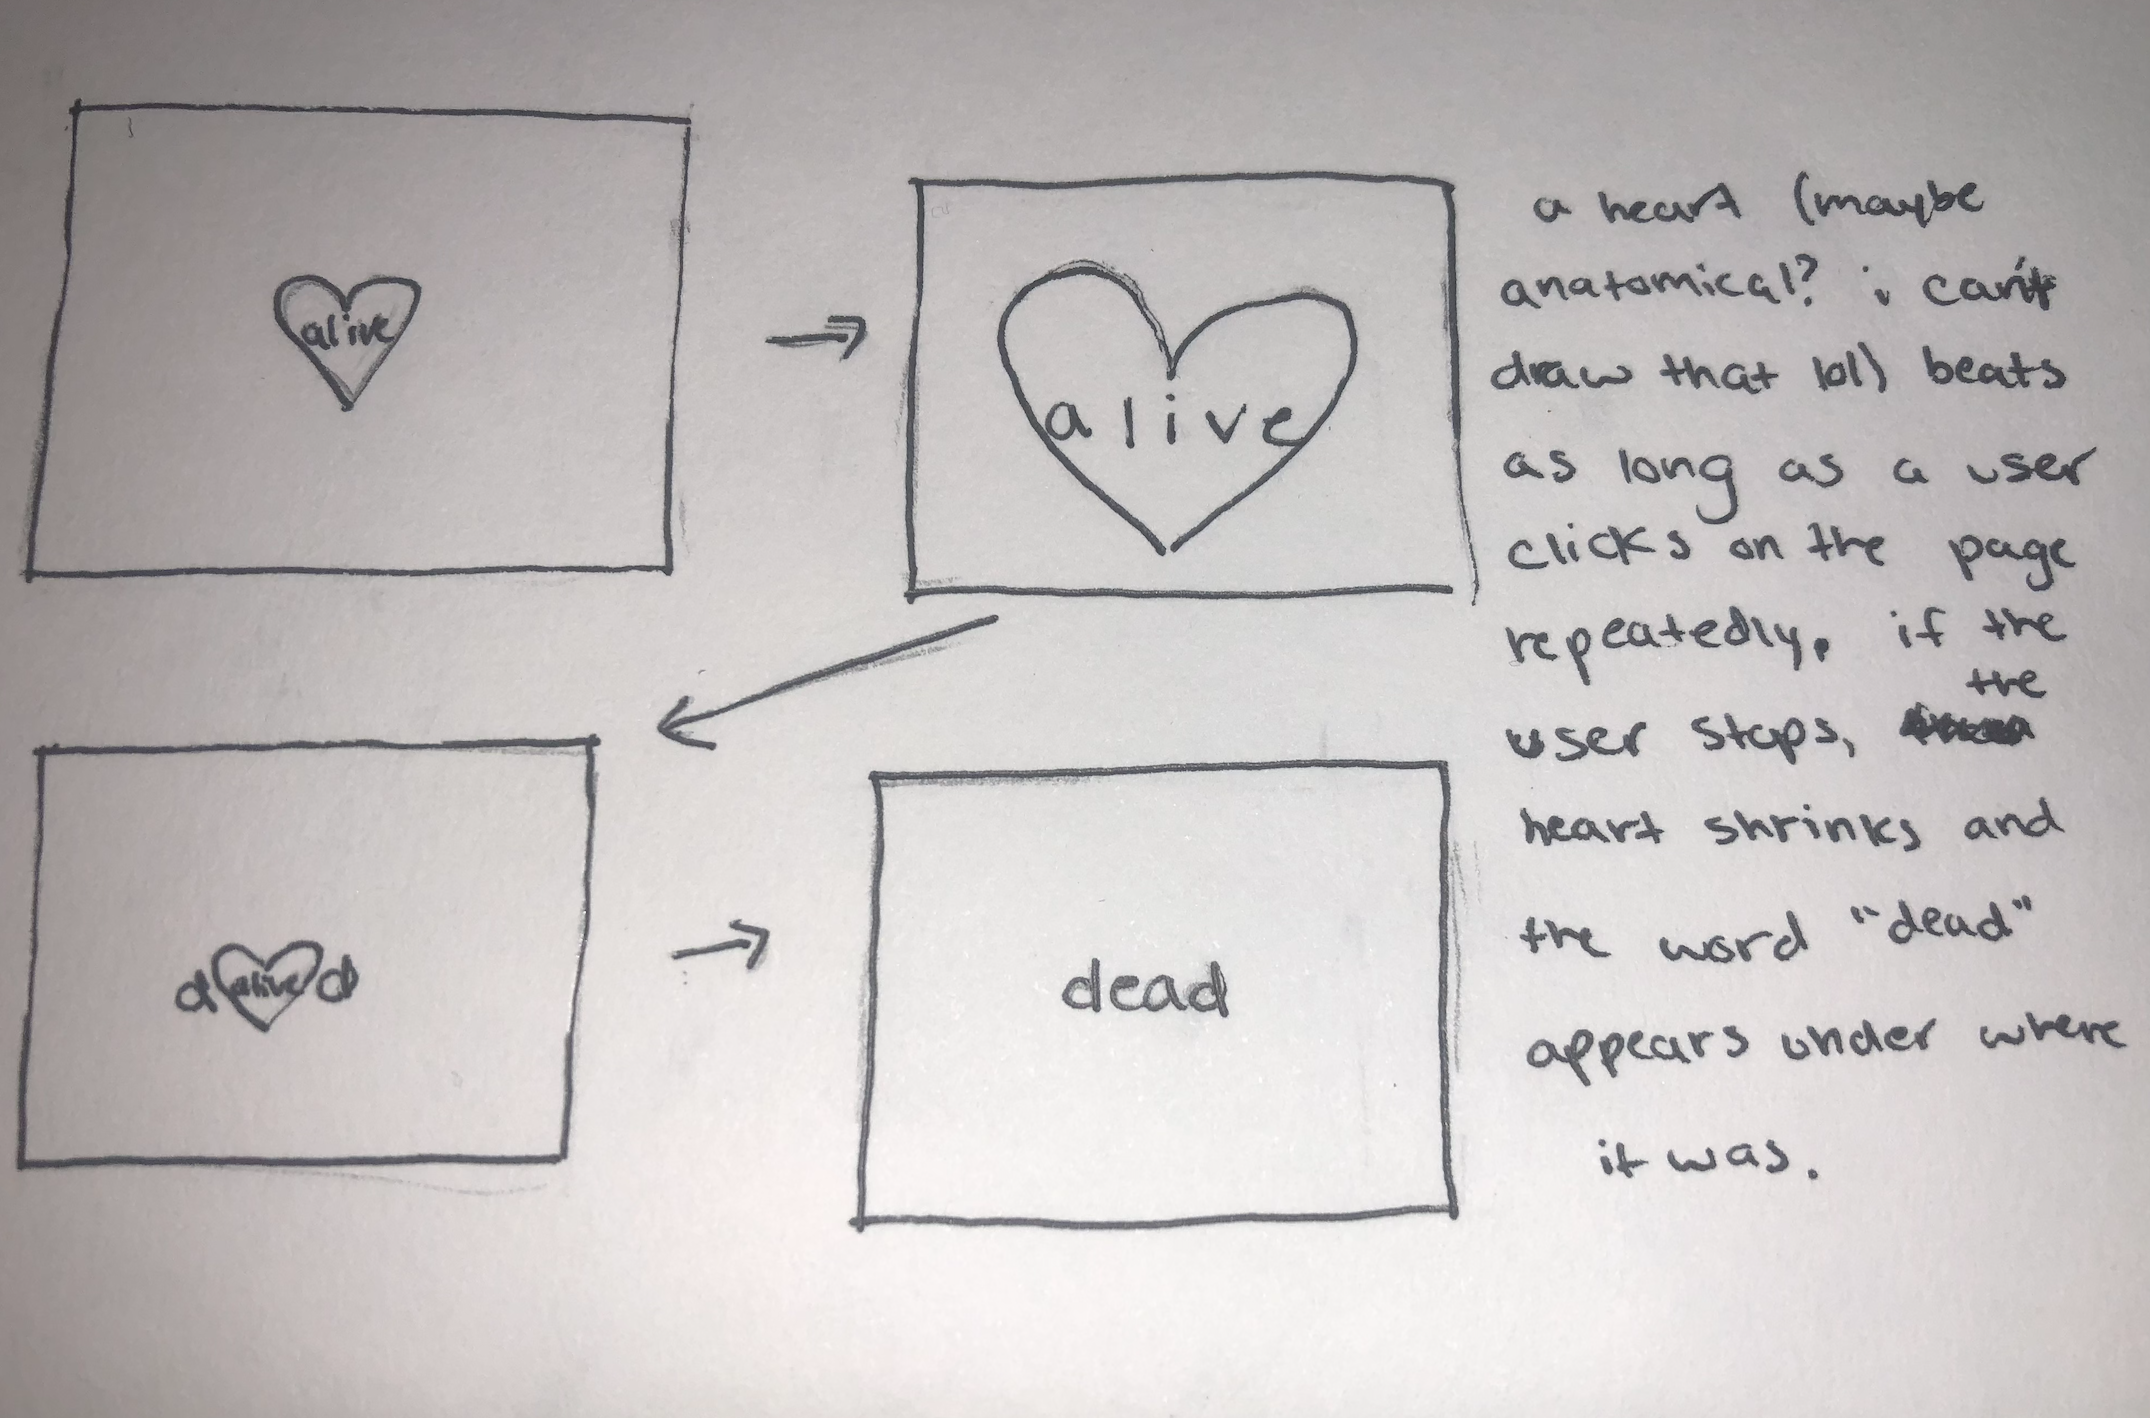 alive
alive
d alive d
dead
a heart (maybe
anatomical? i can't
draw that lol) beats
as long as a user
clicks on the page
repeatedly. if the
the
user stops,
heart shrinks and
the word "dead"
appears under where
it was.